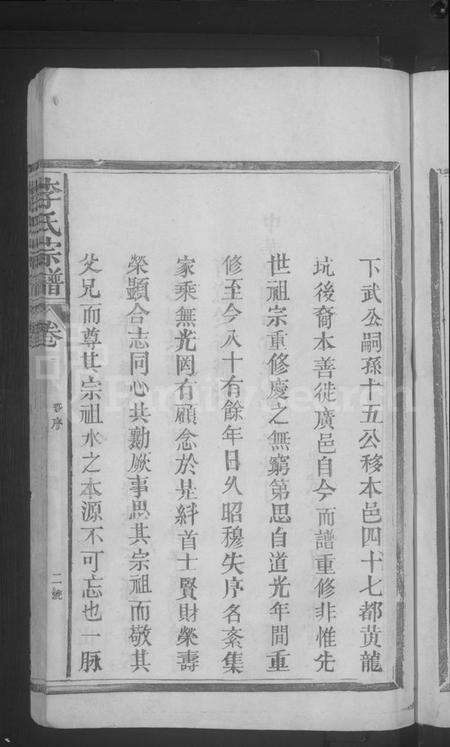 下武公嗣孫十五公移本邑四十七都黃龍
坑後裔本善徙廣邑自今而譜重修非惟先
世祖宗重修慶之無窮第思自道光年間重
修至今八十有餘年日久昭穆失序名紊集
家乘無光罔有顧念於是糾首士賢財榮壽
榮顯合志同心共勷厥事思其宗祖而敬其
父兄而尊其宗祖水之本源不可忘也一脈
李氏宗譜 卷
序
二
FamilySearch